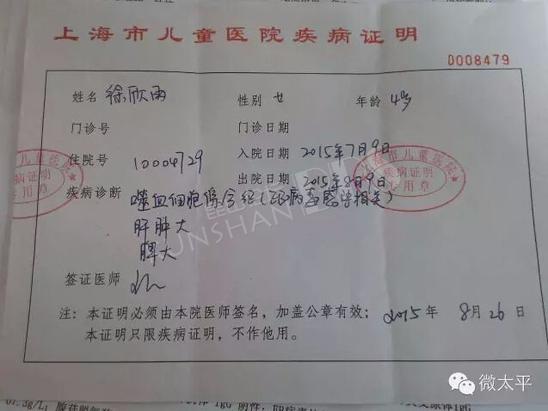 上海市儿童医院疾病证明
D008479
姓名 徐欣雨 性别 女 年龄 4岁
门诊号 门诊日期
住院号 10004729 入院日期 2015年7月9日
出院日期 2015年8月9日
疾病诊断 噬血细胞综合征(EB病毒感染相关)
肝肿大
脾大
签证医师
注：本证明必须由本院医师签名，加盖公章有效； 2015年 8月26日
本证明只限疾病证明，不作他用。
上海市儿童医院
疾病证明
专用章
UNSHAN
微太平